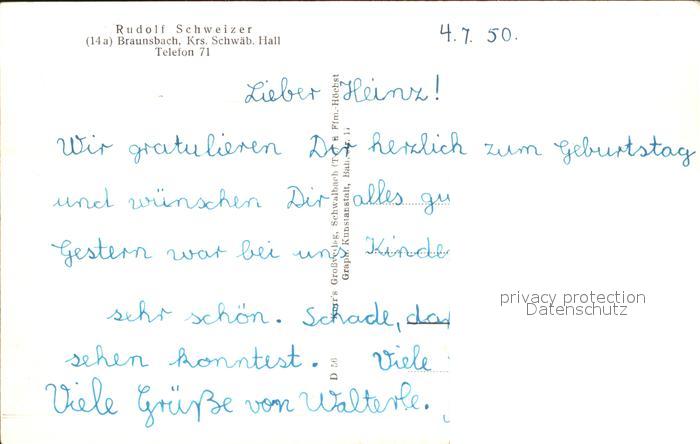 Rudolf Schweizer
(14a) Braunsbach, Krs. Schwäb. Hall
Telefon 71
4.7.50.
Lieber Heinz!
Wir gratulieren Dir herzlich zum Geburtstag
und wünschen Dir alles gu
Gestern war bei uns Kinde
sehr schön. Schade, das
sehen konntest. Viele
Viele Grüße von Walterle.
Großverlag, Schwalbach
Frm. Höchst
Graph. Kunstanstalt,
D 56
privacy protection
Datenschutz